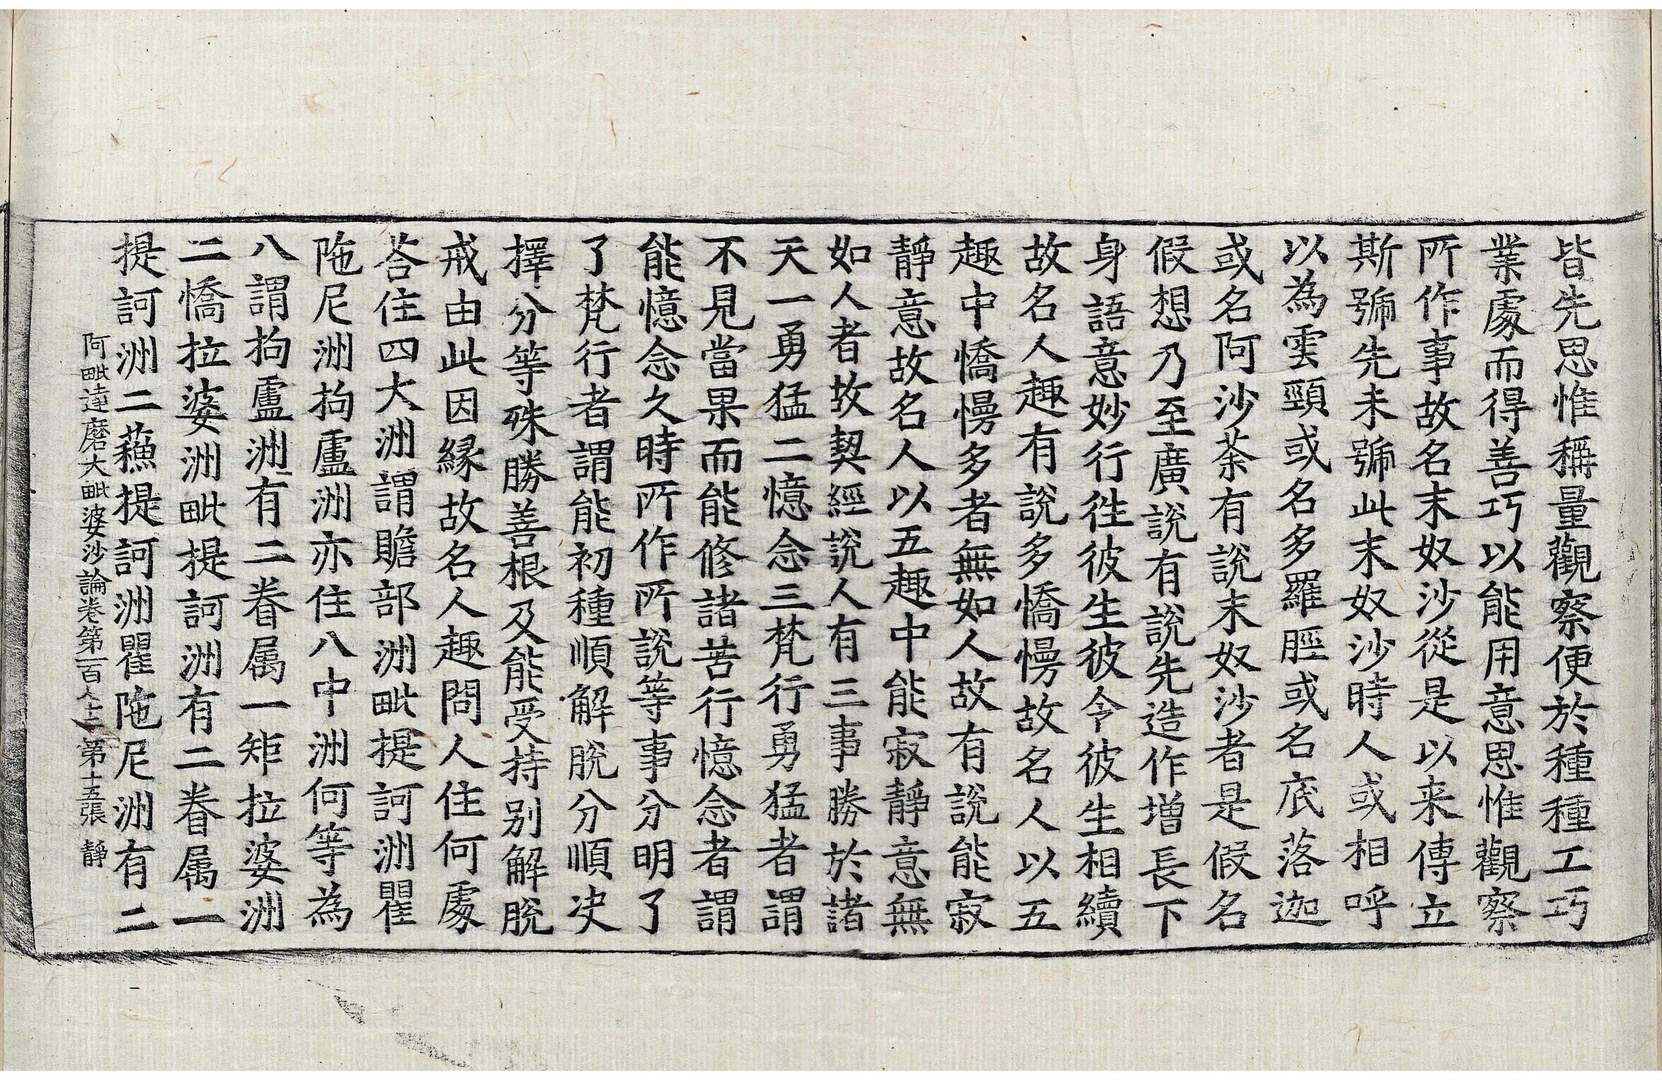 皆先思惟稱量觀察便於種種工巧
業處而得善巧以能用意思惟觀察
所作事故名末奴沙從是以来傳立
斯號先未號此末奴沙時人或相呼
以為雲頸或名多羅脛或名底落迦
或名阿沙荼有說末奴沙者是假名
假想乃至廣說有說先造作增長下
身語意妙行徃彼生彼令彼生相續
故名人趣有說多憍慢故名人以五
趣中憍慢多者無如人故有說能寂
靜意故名人以五趣中能寂靜意無
如人者故契經說人有三事勝於諸
天一勇猛二憶念三梵行勇猛者謂
不見當果而能修諸苦行憶念者謂
能憶念久時所作所說等事分明了
了梵行者謂能初種順解脫分順决
擇分等殊勝善根及能受持别解脫
戒由此因緣故名人趣問人住何處
荅住四大洲謂贍部洲毗提訶洲瞿
陁尼洲拘盧洲亦住八中洲何等為
八謂拘盧洲有二眷属一矩拉婆洲
二憍拉婆洲毗提訶洲有二眷属一
提訶洲二蘓提訶洲瞿陁尼洲有二
阿毗達磨大毗婆沙論卷第一百七十二 第十五張 靜